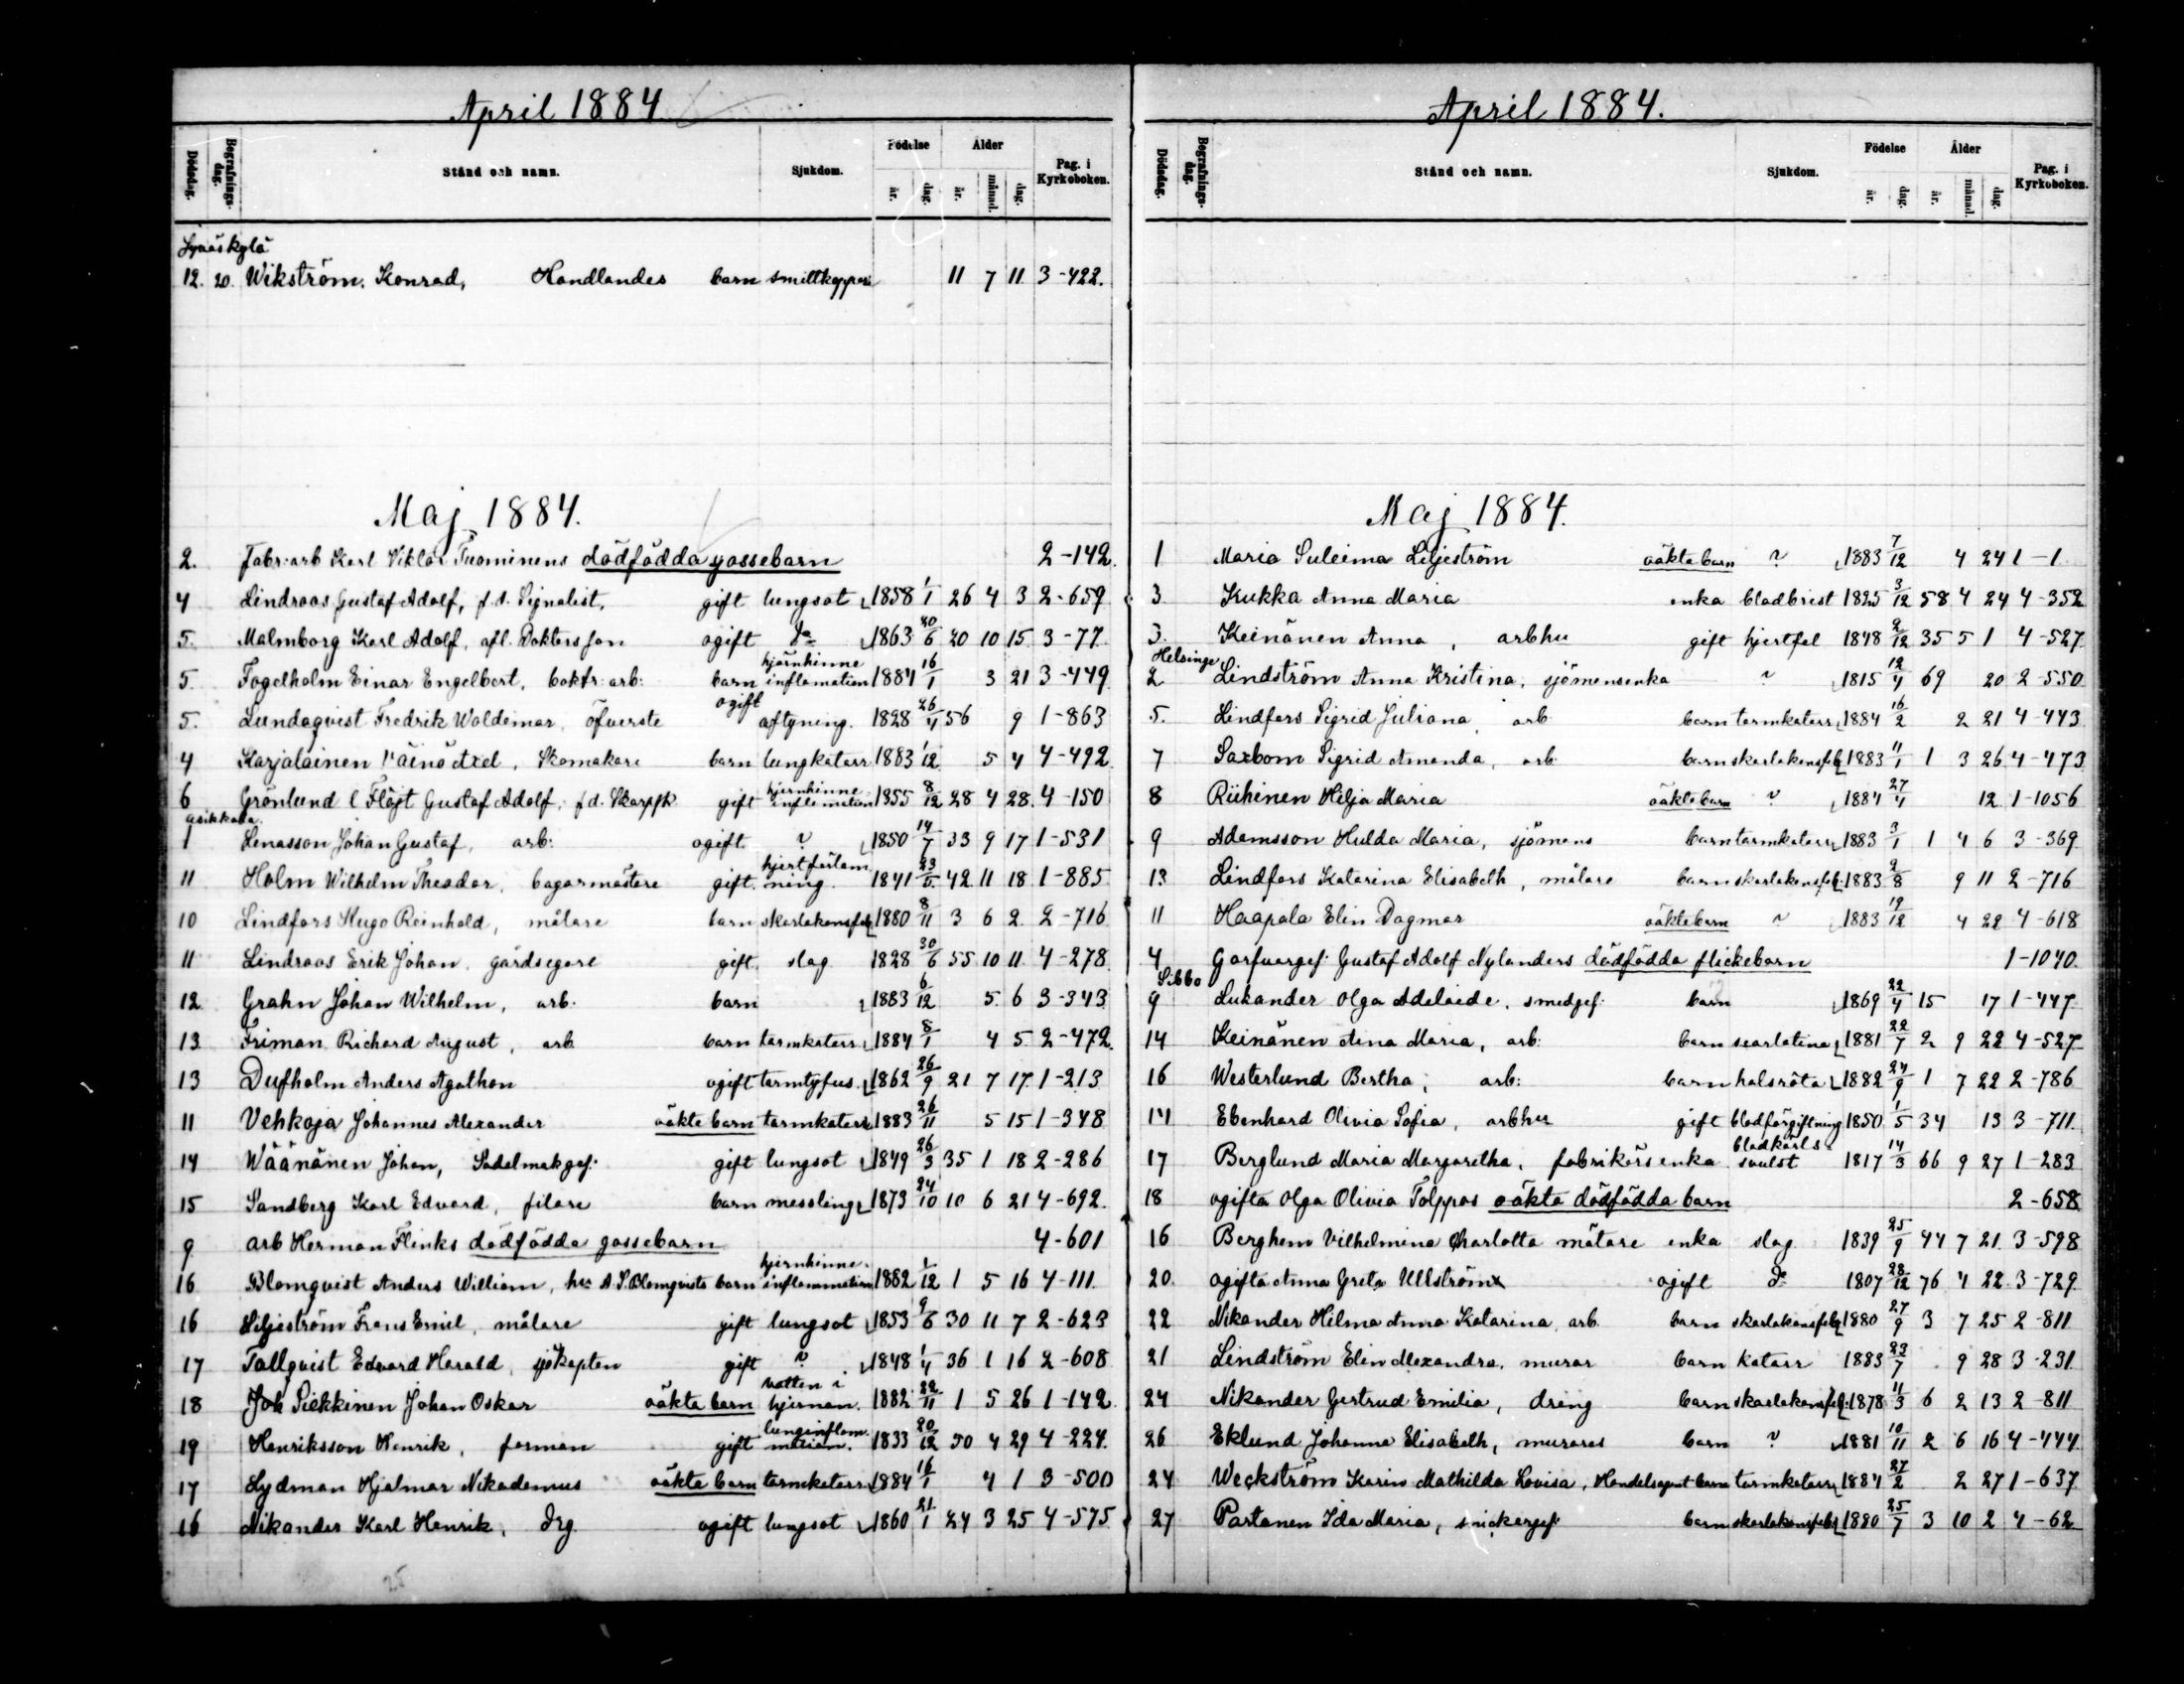 April 1884
Dödsdag. Begrafningsdag. Stånd och namn. Sjukdom. Födelse år. dag. Ålder år. månad. dag. Pag. i Kyrkoboken.
12. 20. Wikström, Konrad, Handlandes barn smittkoppor 11 7 11 3-422.
Maj 1884.
2. Fabr: arb Karl Viktor Tuominens dödfödda gossebarn 2-142.
4 Lindroos Gustaf Adolf, f.d. Signalist, gift lungsot 1858 1/1 26 4 3 2-659
5. Malmborg Karl Adolf, afl. Doktors son ogift do 1863 20 10 15 3-77.
hjärnhinne
5. Fogelholm Einar Engelbert, boktr: arb: barn inflamation 1884 16/1 3 21 3-449
ogift
5. Lundqvist Fredrik Woldemar, öfverste aftyning. 1828 26/4 56 9 1-863
4 Karjalainen Väinö Axel, Skomakare barn lungkatarr 1883 1/12 5 4 4-492
hjernhinne
6 Grönlund l Flöjt Gustaf Adolf, f.d. Skarpsk gift inflamation 1855 8/12 28 4 28. 4-150
Asikkala.
1 Lenasson Johan Gustaf, arb: ogift ? 1850 14/7 33 9 17 1-531
hjertförlam
11 Holm Wilhelm Theodor, bagarmästare gift ning. 1841 23/5 42 11 18 1-885
10 Lindfors Hugo Reinhold, målare barn skarlakansfeb 1880 8/11 3 6 2 2-716
11 Lindroos Erik Johan, gårdsegare gift slag 1828 30/6 55 10 11 4-278
12 Grahn Johan Wilhelm, arb. barn 1883 6/12 5 6 3-343
13 Friman Richard August, arb barn tarmkatarr 1884 8/1 4 5 2-472.
13 Dufholm Anders Agathon ogift tarmtyfus 1862 26/9 21 7 17 1-213
11 Vehkoja Johannes Alexander oäkta barn tarmkatarr 1883 26/11 5 15 1-348
14 Wäänänen Johan, Sadelmakgef. gift lungsot 1849 26/3 35 1 18 2-286
15 Sandberg Karl Edvard, filare barn messling 1873 24/10 10 6 21 4-692.
9 arb Herman Flinks dödfödda gossebarn 4-601
hjernhinne.
16 Blomqvist Anders William, A. S. Blomqvists barn inflammation 1882 1/12 1 5 16 4-111.
16 Liljeström Frans Emil, målare gift lungsot 1853 9/6 30 11 7 2-623
17 Tallqvist Edvard Harald, sjökapten gift ? 1848 1/4 36 1 16 2-608
vatten i
18 Joh Piekkinen Johan Oskar oäkta barn hjernan. 1882 22/11 1 5 26 1-142
lunginflam.
19 Henriksson Henrik, forman gift mation. 1833 20/12 50 4 29 4-224.
17 Lydman Hjalmar Nikodemus oäkta barn tarmkatarr 1884 16/1 4 1 3-500
16 Nikander Karl Henrik, drg ogift lungsot 1860 21/1 24 3 25 4-575
25
April 1884.
Dödsdag. Begrafningsdag. Stånd och namn. Sjukdom. Födelse år. dag. Ålder år. månad. dag. Pag. i Kyrkoboken.
Maj 1884.
1 Maria Suleima Liljeström oäkta barn ? 1883 7/12 4 24 1-1
3 Kukka Anna Maria enka bladbrist 1825 3/12 58 4 24 4-352
3. Keinänen Anna, arbhu gift hjertfel 1848 2/12 35 5 1 4-527
Helsinge
2 Lindström Anna Kristina, sjömansenka ? 1815 12/4 69 20 2-550
5. Lindfors Sigrid Juliana, arb barn tarmkatarr 1884 16/2 2 21 4-443
7 Saxbom Sigrid Amanda, arb barn skarlakansfeb 1883 11/1 1 3 26 4-473
8 Riihinen Hilja Maria oäkta barn ? 1884 27/4 12 1-1056
9 Adamsson Hulda Maria, sjömans barn tarmkatarr 1883 3/1 1 4 6 3-369
13 Lindfors Katarina Elisabeth, målare barn skarlakansfeb. 1883 2/8 9 11 2-716
11 Haapala Elin Dagmar oäkta barn ? 1883 19/12 4 22 4-618
4 Garfvargef. Gustaf Adolf Nylanders dödfödda flickebarn 1-1040.
Sibbo
9 Lukander Olga Adelaide, smedgef. barn 1869 22/4 15 17 1-447
14 Keinänen Aina Maria, arb: barn scarlatina 1881 22/7 2 9 22 4-527
16 Westerlund Bertha, arb: barn halsröta 1882 24/9 1 7 22 2-786
14 Ebenhard Olivia Sofia, arbhu gift blodförgiftning 1850 1/5 34 13 3-711.
blodkärls
17 Berglund Maria Margaretha, fabrikörsenka svulst 1817 14/3 66 9 27 1-283
18 ogifta Olga Olivia Tolppas oäkta dödfödda barn 2-658
16 Berghem Vilhelmina Charlotta målare enka slag 1839 25/9 44 7 21 3-598
20. ogifta Anna Greta Ullström ogift do 1807 28/12 76 4 22 3-729.
22 Nikander Hilma Anna Katarina, arb. barn skarlakansfeb 1880 27/9 3 7 25 2-811
21 Lindström Elin Alexandra, murar barn katarr 1883 23/7 9 28 3-231
24 Nikander Gertrud Emilia, dräng barn skarlakansfeb. 1878 11/3 6 2 13 2-811
26 Eklund Johanna Elisabeth, murares barn ? 1881 10/11 2 6 16 4-444
24 Weckström Karin Mathilda Lovisa, Handelsagent barn tarmkatarr 1884 27/2 2 27 1-637
27 Partanen Ida Maria, snickargef. barn skarlakansfeb 1880 25/7 3 10 2 4-62